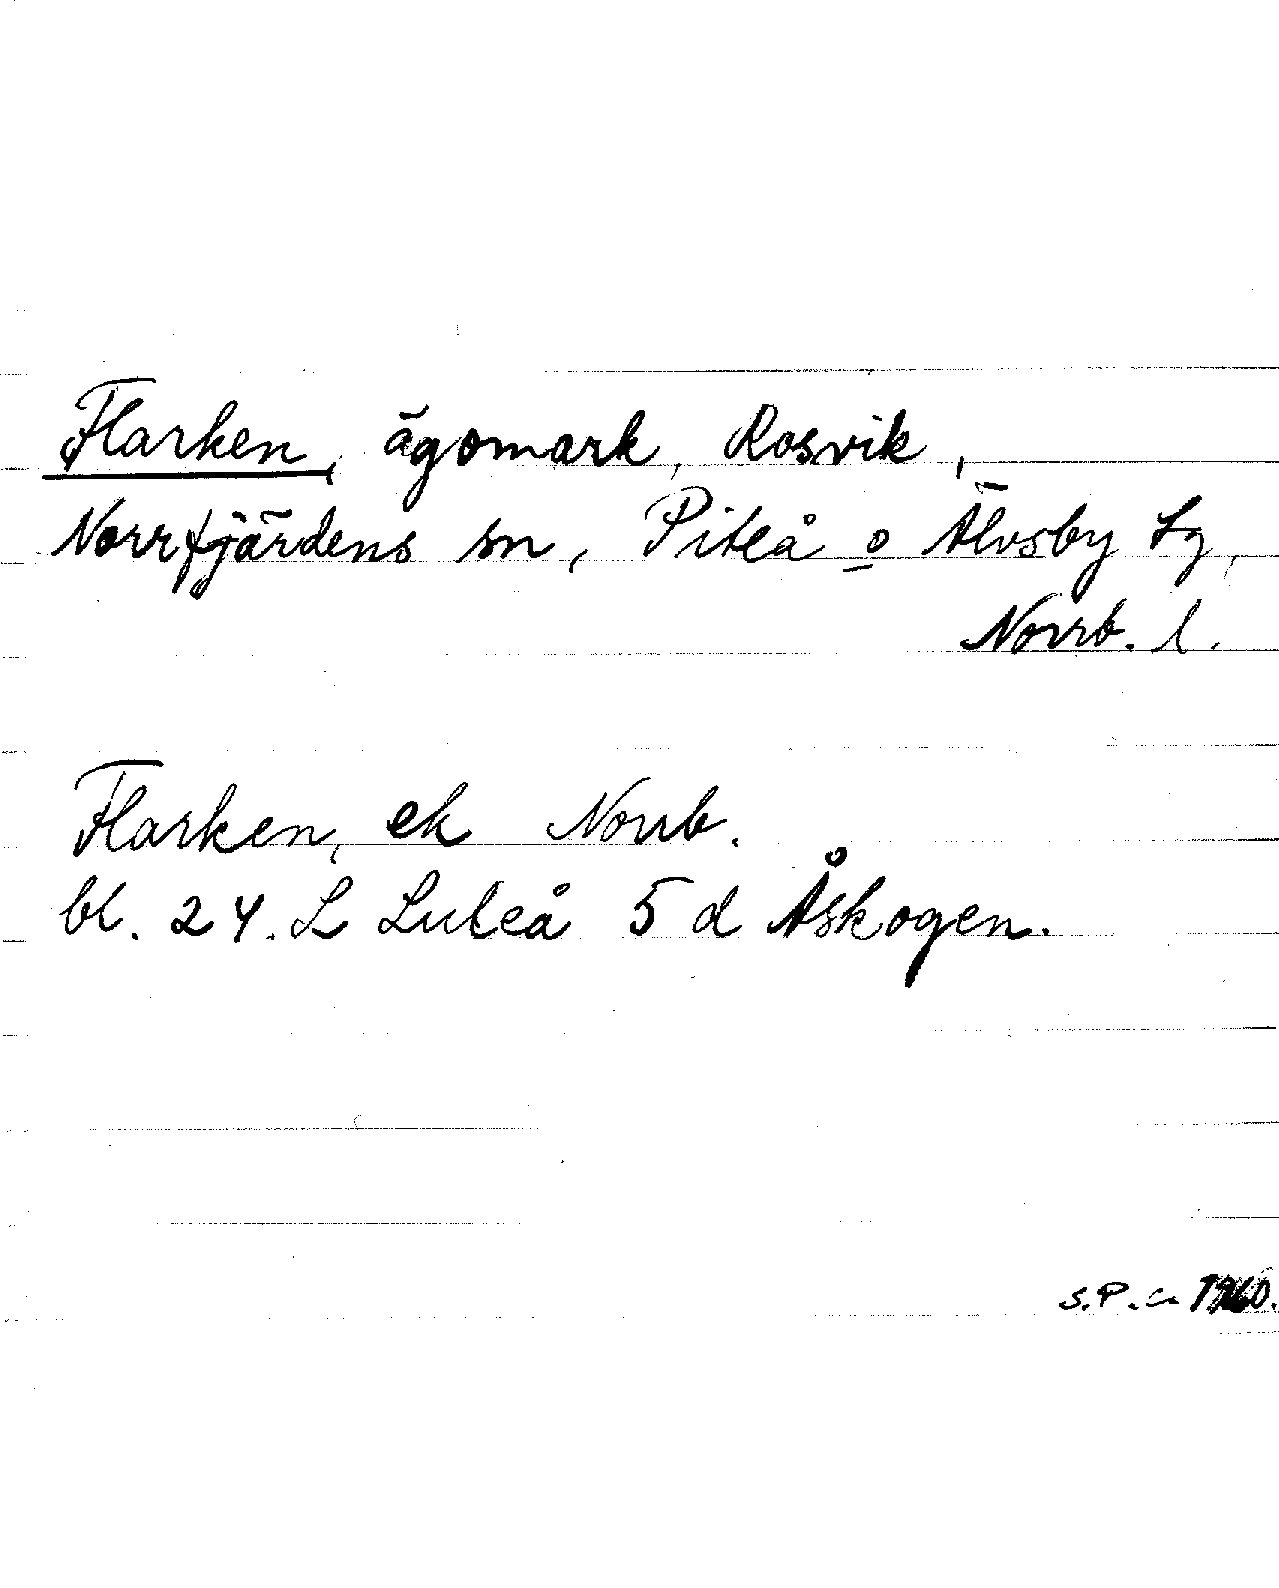 Flarken, ägomark, Rosvik,
Norrfjärdens sn, Piteå o Älvsby tg,
Norrb. l.
Flarken, ek Norrb.
bl. 24. L Luleå 5 d Åskogen.
S.P. c. 1960.